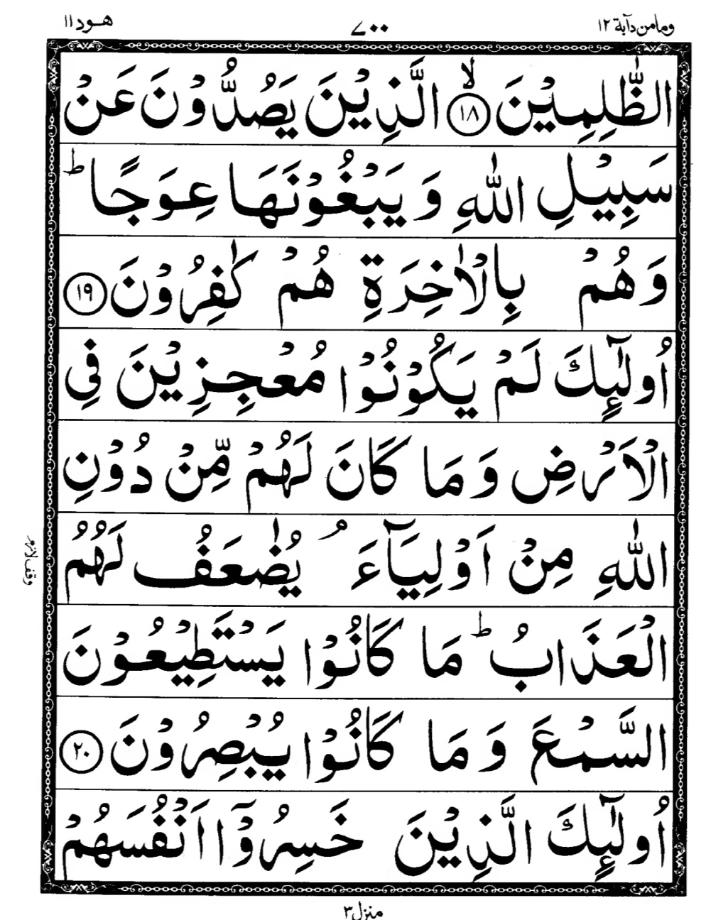 وما من دآبة ١٢ ٧٠٠ هود ١١
الظّٰلِمِيْنَ ۙ‏﴿۱۸﴾ الَّذِيْنَ يَصُدُّوْنَ عَنْ
سَبِيْلِ اللّٰهِ وَ يَبْغُوْنَهَا عِوَجًا ؕ
وَهُمْ بِالْاٰخِرَةِ هُمْ كٰفِرُوْنَ ﴿۱۹﴾
اُولٰٓئِكَ لَمْ يَكُوْنُوْا مُعْجِزِيْنَ فِي
الْاَرْضِ وَ مَا كَانَ لَهُمْ مِّنْ دُوْنِ
اللّٰهِ مِنْ اَوْلِيَآءَ ۘ يُضٰعَفُ لَهُمُ
وقف لازم
الْعَذَابُ ؕ مَا كَانُوْا يَسْتَطِيْعُوْنَ
السَّمْعَ وَ مَا كَانُوْا يُبْصِرُوْنَ ﴿۲۰﴾
اُولٰٓئِكَ الَّذِيْنَ خَسِرُوْٓا اَنْفُسَهُمْ
منزل ٣